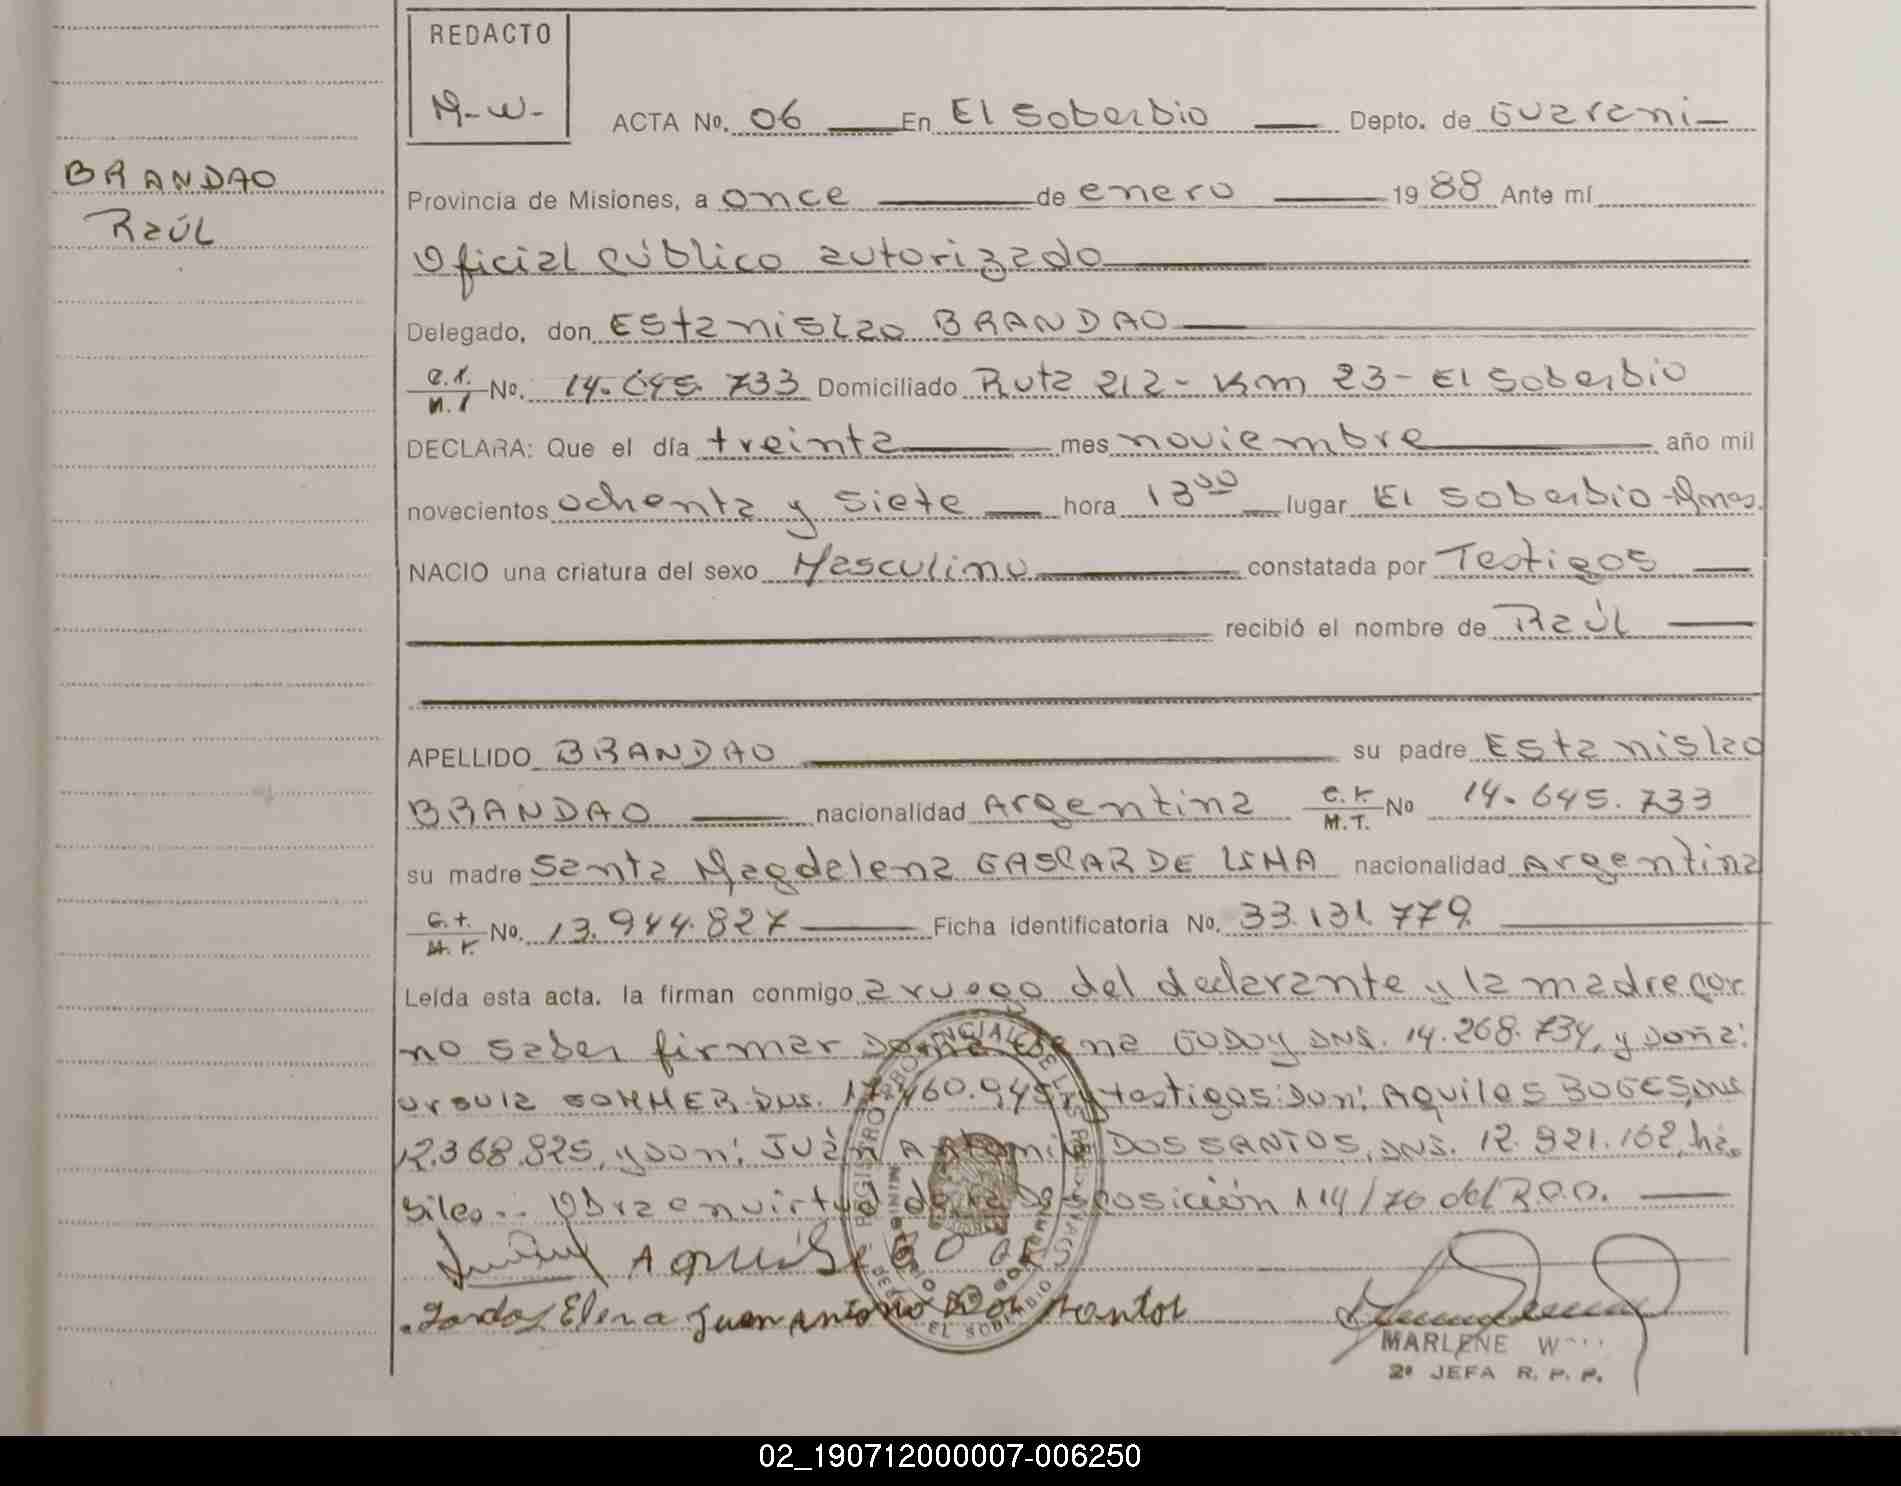 REDACTO
M-W-
ACTA No. 06 En El Soberbio Depto. de Guarani
BRANDAO
Raúl
Provincia de Misiones, a once de enero 1988 Ante mí
Oficial público autorizado
Delegado, don Estanislao BRANDAO
No. 14.645.733 Domiciliado Ruta 212- Km 23- El Soberbio
DECLARA: Que el día treinta mes noviembre año mil
novecientos ochenta y siete hora lugar El Soberbio-Mnes.
NACIO una criatura del sexo Masculino constatada por Testigos
recibió el nombre de Raúl
APELLIDO BRANDAO su padre Estanislao
BRANDAO nacionalidad Argentina M.T. No 14.645.733
su madre Santa Magdalena GASPAR DE LIMA nacionalidad Argentina
No. 13.944.827 Ficha identificatoria No. 33.131.779
Leída esta acta, la firman conmigo a ruego del declarante y la madre por
no saber firmar Doña Elena GODOY DNI. 14.268.734, y Doña:
Ursula SOMMER DNI. 17.460.945, y testigos: Don: Aquiles BOGES DNI
12.368.825, y Don: Juán Antonio DOS SANTOS, DNI. 12.921.162, há-
biles.- Obra en virtud de la Disposición 114/70 del R.P.P.
Elena Juan Antonio Dos Santos
MARLENE
2ª JEFA R. P. P.
EL SOBERBIO
02_190712000007-006250